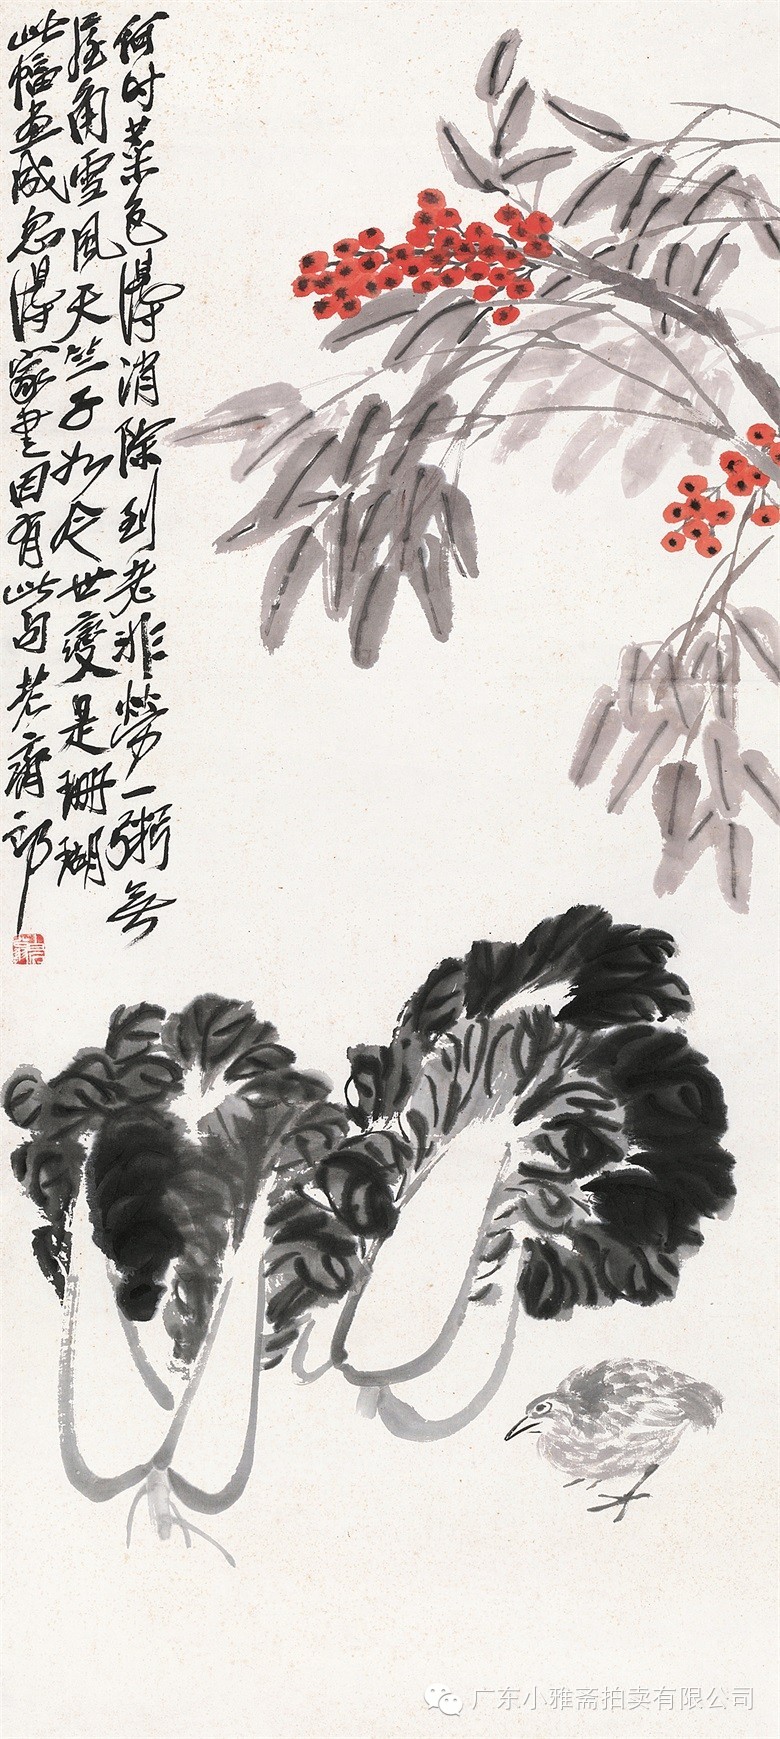 何时菜色得消除到老非荣一粥无
屋角雪风天竺子如今世变是珊瑚
此幅画成忽得家书因有此句老齐郎
广东小雅斋拍卖有限公司